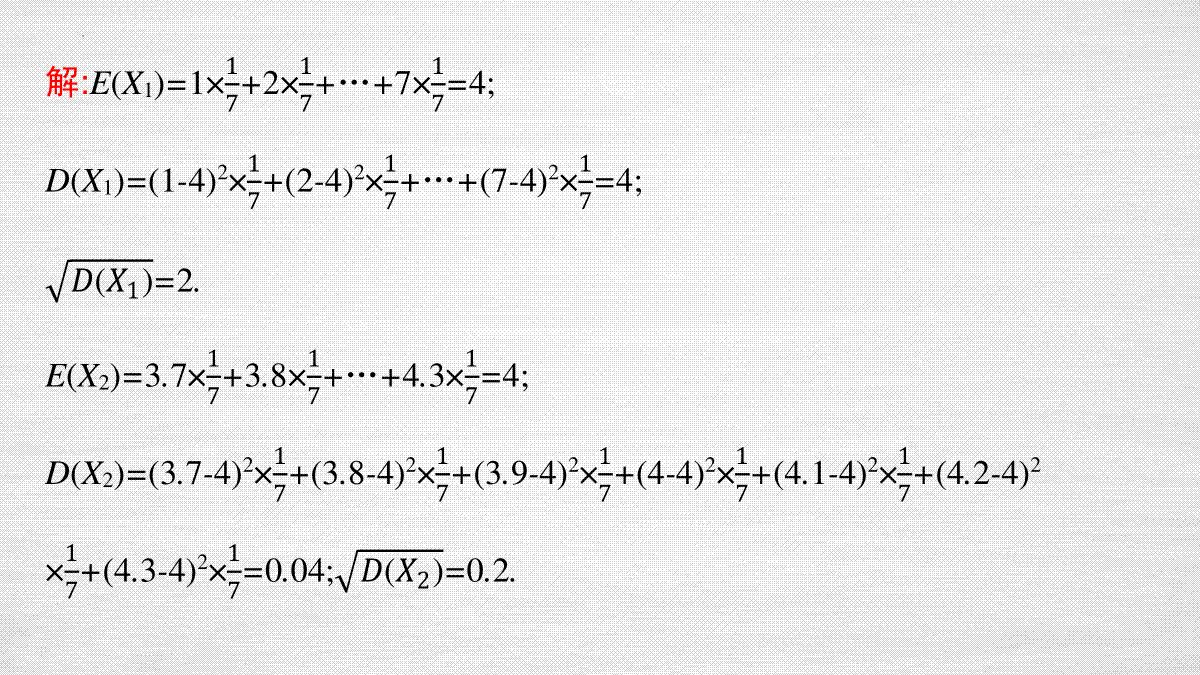 解:E(X₁)=1×1/7+2×1/7+…+7×1/7=4;
D(X₁)=(1-4)²×1/7+(2-4)²×1/7+…+(7-4)²×1/7=4;
√D(X₁)=2.
E(X₂)=3.7×1/7+3.8×1/7+…+4.3×1/7=4;
D(X₂)=(3.7-4)²×1/7+(3.8-4)²×1/7+(3.9-4)²×1/7+(4-4)²×1/7+(4.1-4)²×1/7+(4.2-4)²
×1/7+(4.3-4)²×1/7=0.04;√D(X₂)=0.2.